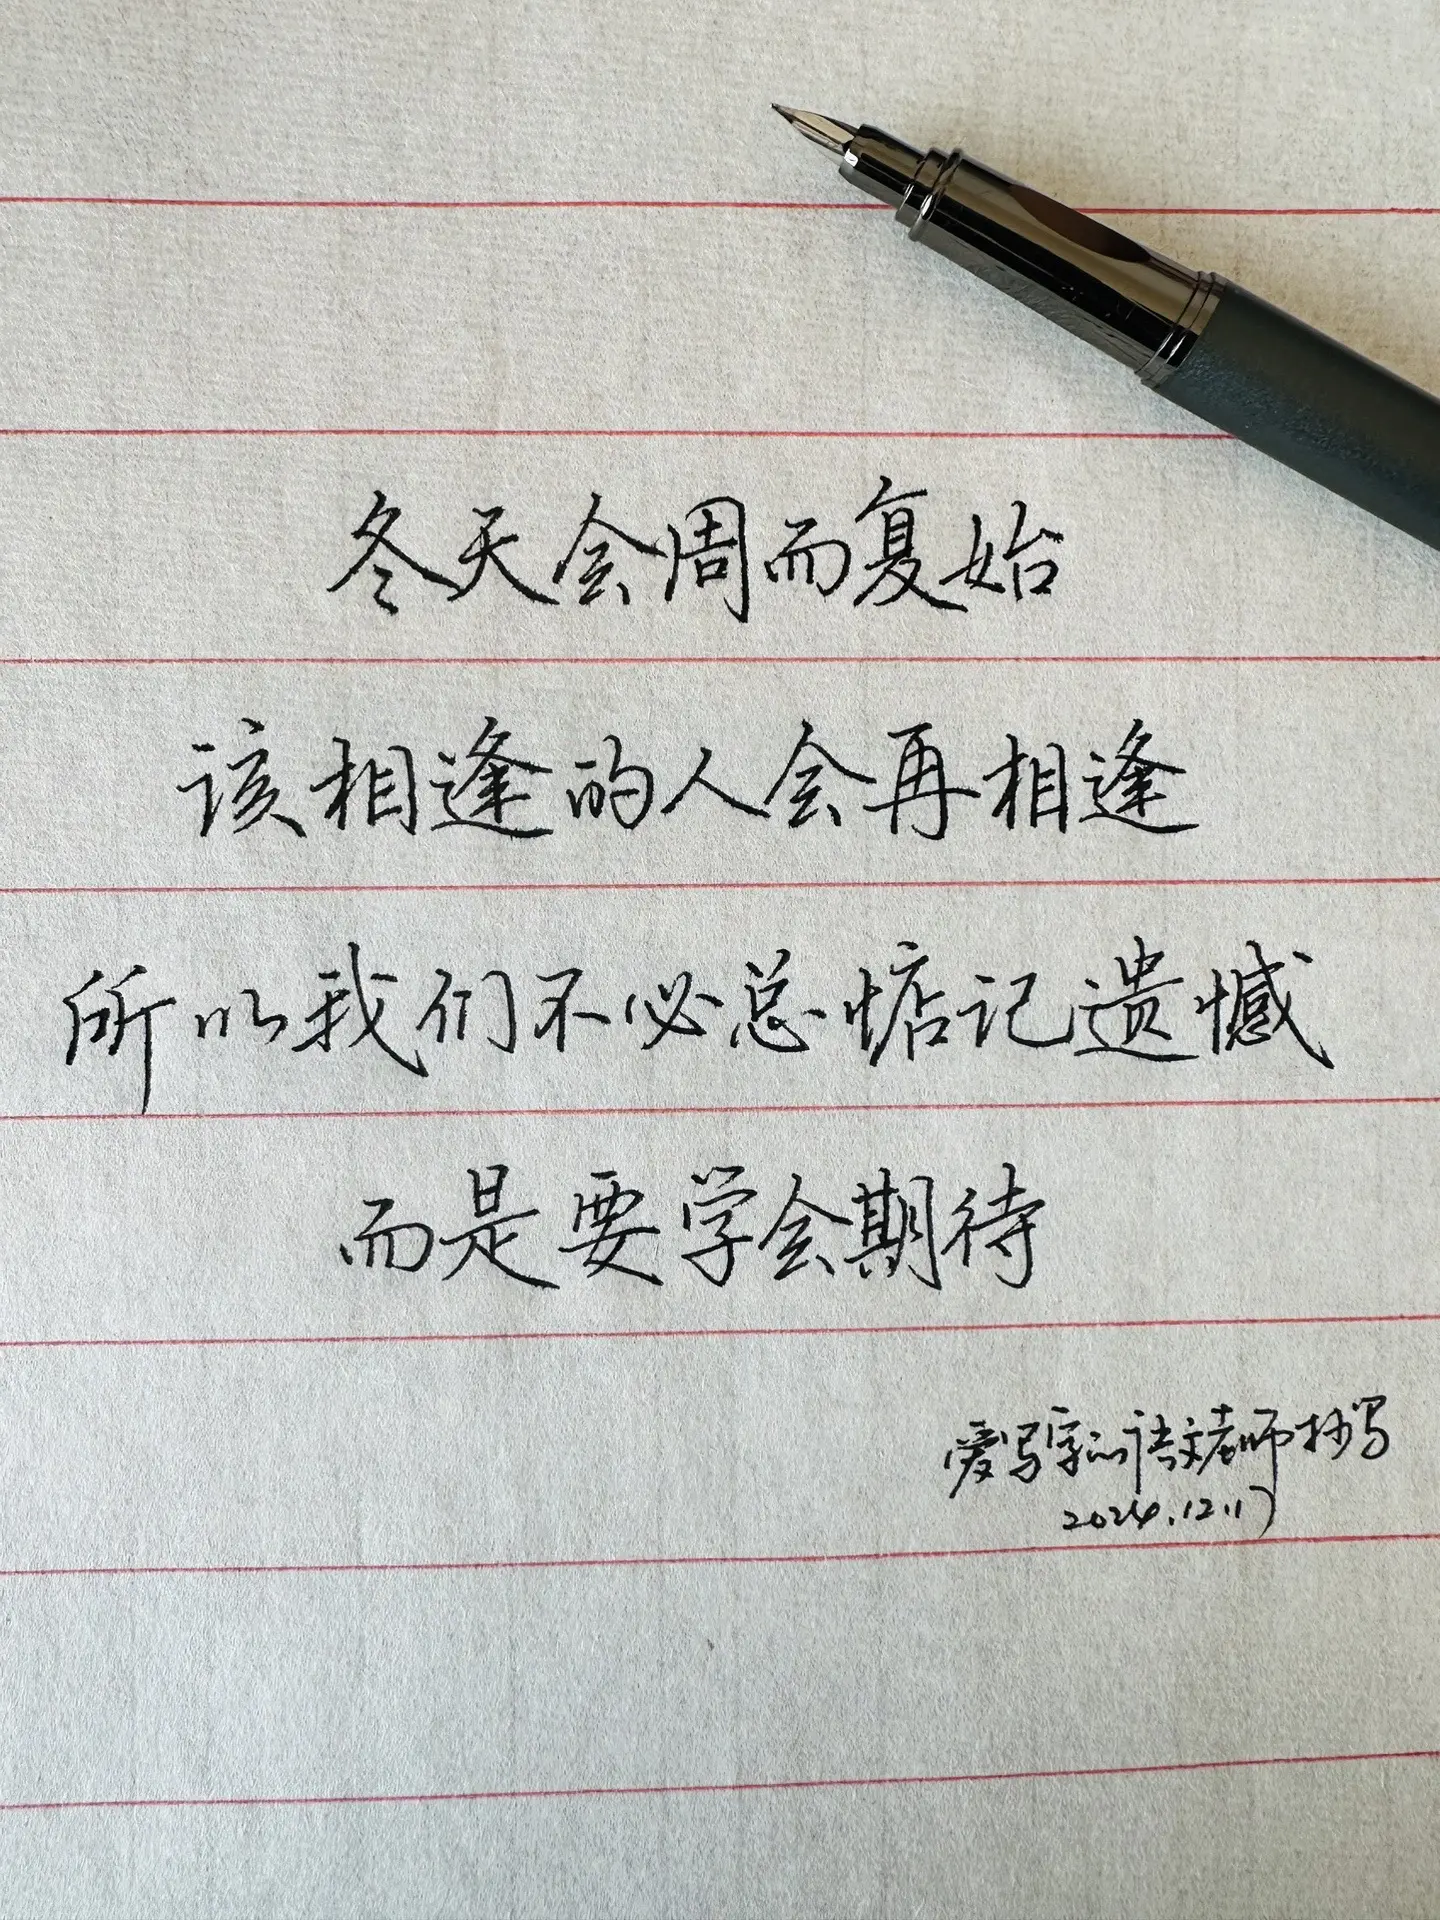 冬天会周而复始
该相逢的人会再相逢
所以我们不必总惦记遗憾
而是要学会期待
爱写字的语文老师抄写
2024.12.17